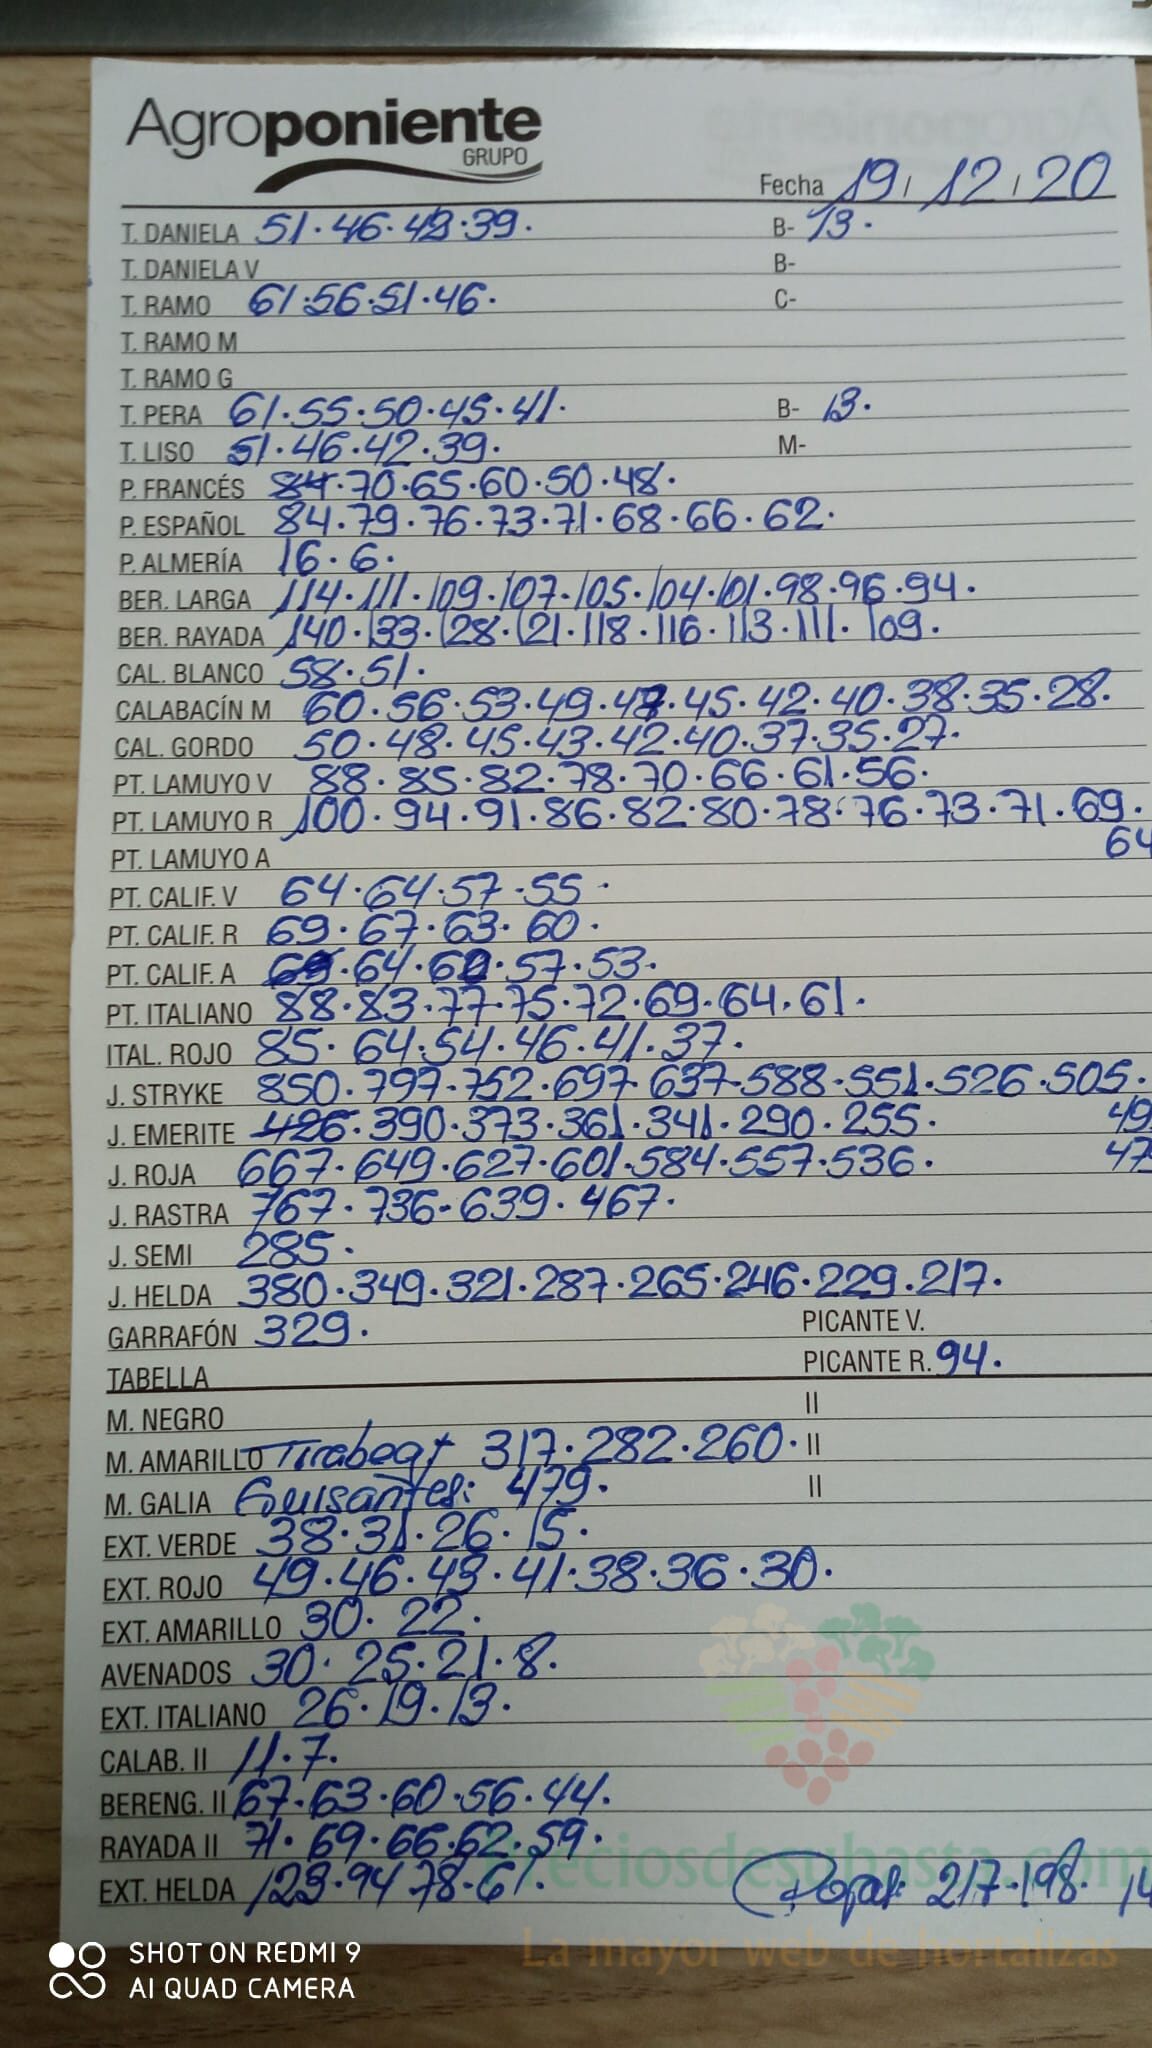 Agroponiente
GRUPO
Fecha 19 / 12 / 20
T. DANIELA 51.46.43.39. B- 13.
T. DANIELA V B-
T. RAMO 61.56.51.46. C-
T. RAMO M
T. RAMO G
T. PERA 61.55.50.45.41. B- 13.
T. LISO 51.46.42.39. M-
P. FRANCÉS 84.70.65.60.50.48.
P. ESPAÑOL 84.79.76.73.71.68.66.62.
P. ALMERÍA 16.6.
BER. LARGA 114.111.109.107.105.104.101.98.96.94.
BER. RAYADA 140.133.128.121.118.116.113.111.109.
CAL. BLANCO 58.51.
CALABACÍN M 60.56.53.49.47.45.42.40.38.35.28.
CAL. GORDO 50.48.45.43.42.40.37.35.27.
PT. LAMUYO V 88.85.82.78.70.66.61.56.
PT. LAMUYO R 100.94.91.86.82.80.78.76.73.71.69.
PT. LAMUYO A 64
PT. CALIF. V 64.64.57.55.
PT. CALIF. R 69.67.63.60.
PT. CALIF. A 64.60.57.53.
PT. ITALIANO 88.83.77.75.72.69.64.61.
ITAL. ROJO 85.64.54.46.41.37.
J. STRYKE 850.797.752.697.637.588.551.526.505.
J. EMERITE 426.390.373.361.341.290.255. 49
J. ROJA 667.649.627.601.584.557.536. 47
J. RASTRA 767.736.639.467.
J. SEMI 285.
J. HELDA 380.349.321.287.265.246.229.217.
GARRAFÓN 329. PICANTE V.
TABELLA PICANTE R. 94.
M. NEGRO II
M. AMARILLO Tirabeqt 317.282.260. II
M. GALIA Guisantes: 479. II
EXT. VERDE 38.31.26.15.
EXT. ROJO 49.46.43.41.38.36.30.
EXT. AMARILLO 30.22.
AVENADOS 30.25.21.8.
EXT. ITALIANO 26.19.13.
CALAB. II 11.7.
BERENG. II 67.63.60.56.44.
RAYADA II 71.69.66.62.59.
Preciosdesubasta.com
EXT. HELDA 123.94.78.61. 217.198. 14
La mayor web de hortalizas
SHOT ON REDMI 9
AI QUAD CAMERA